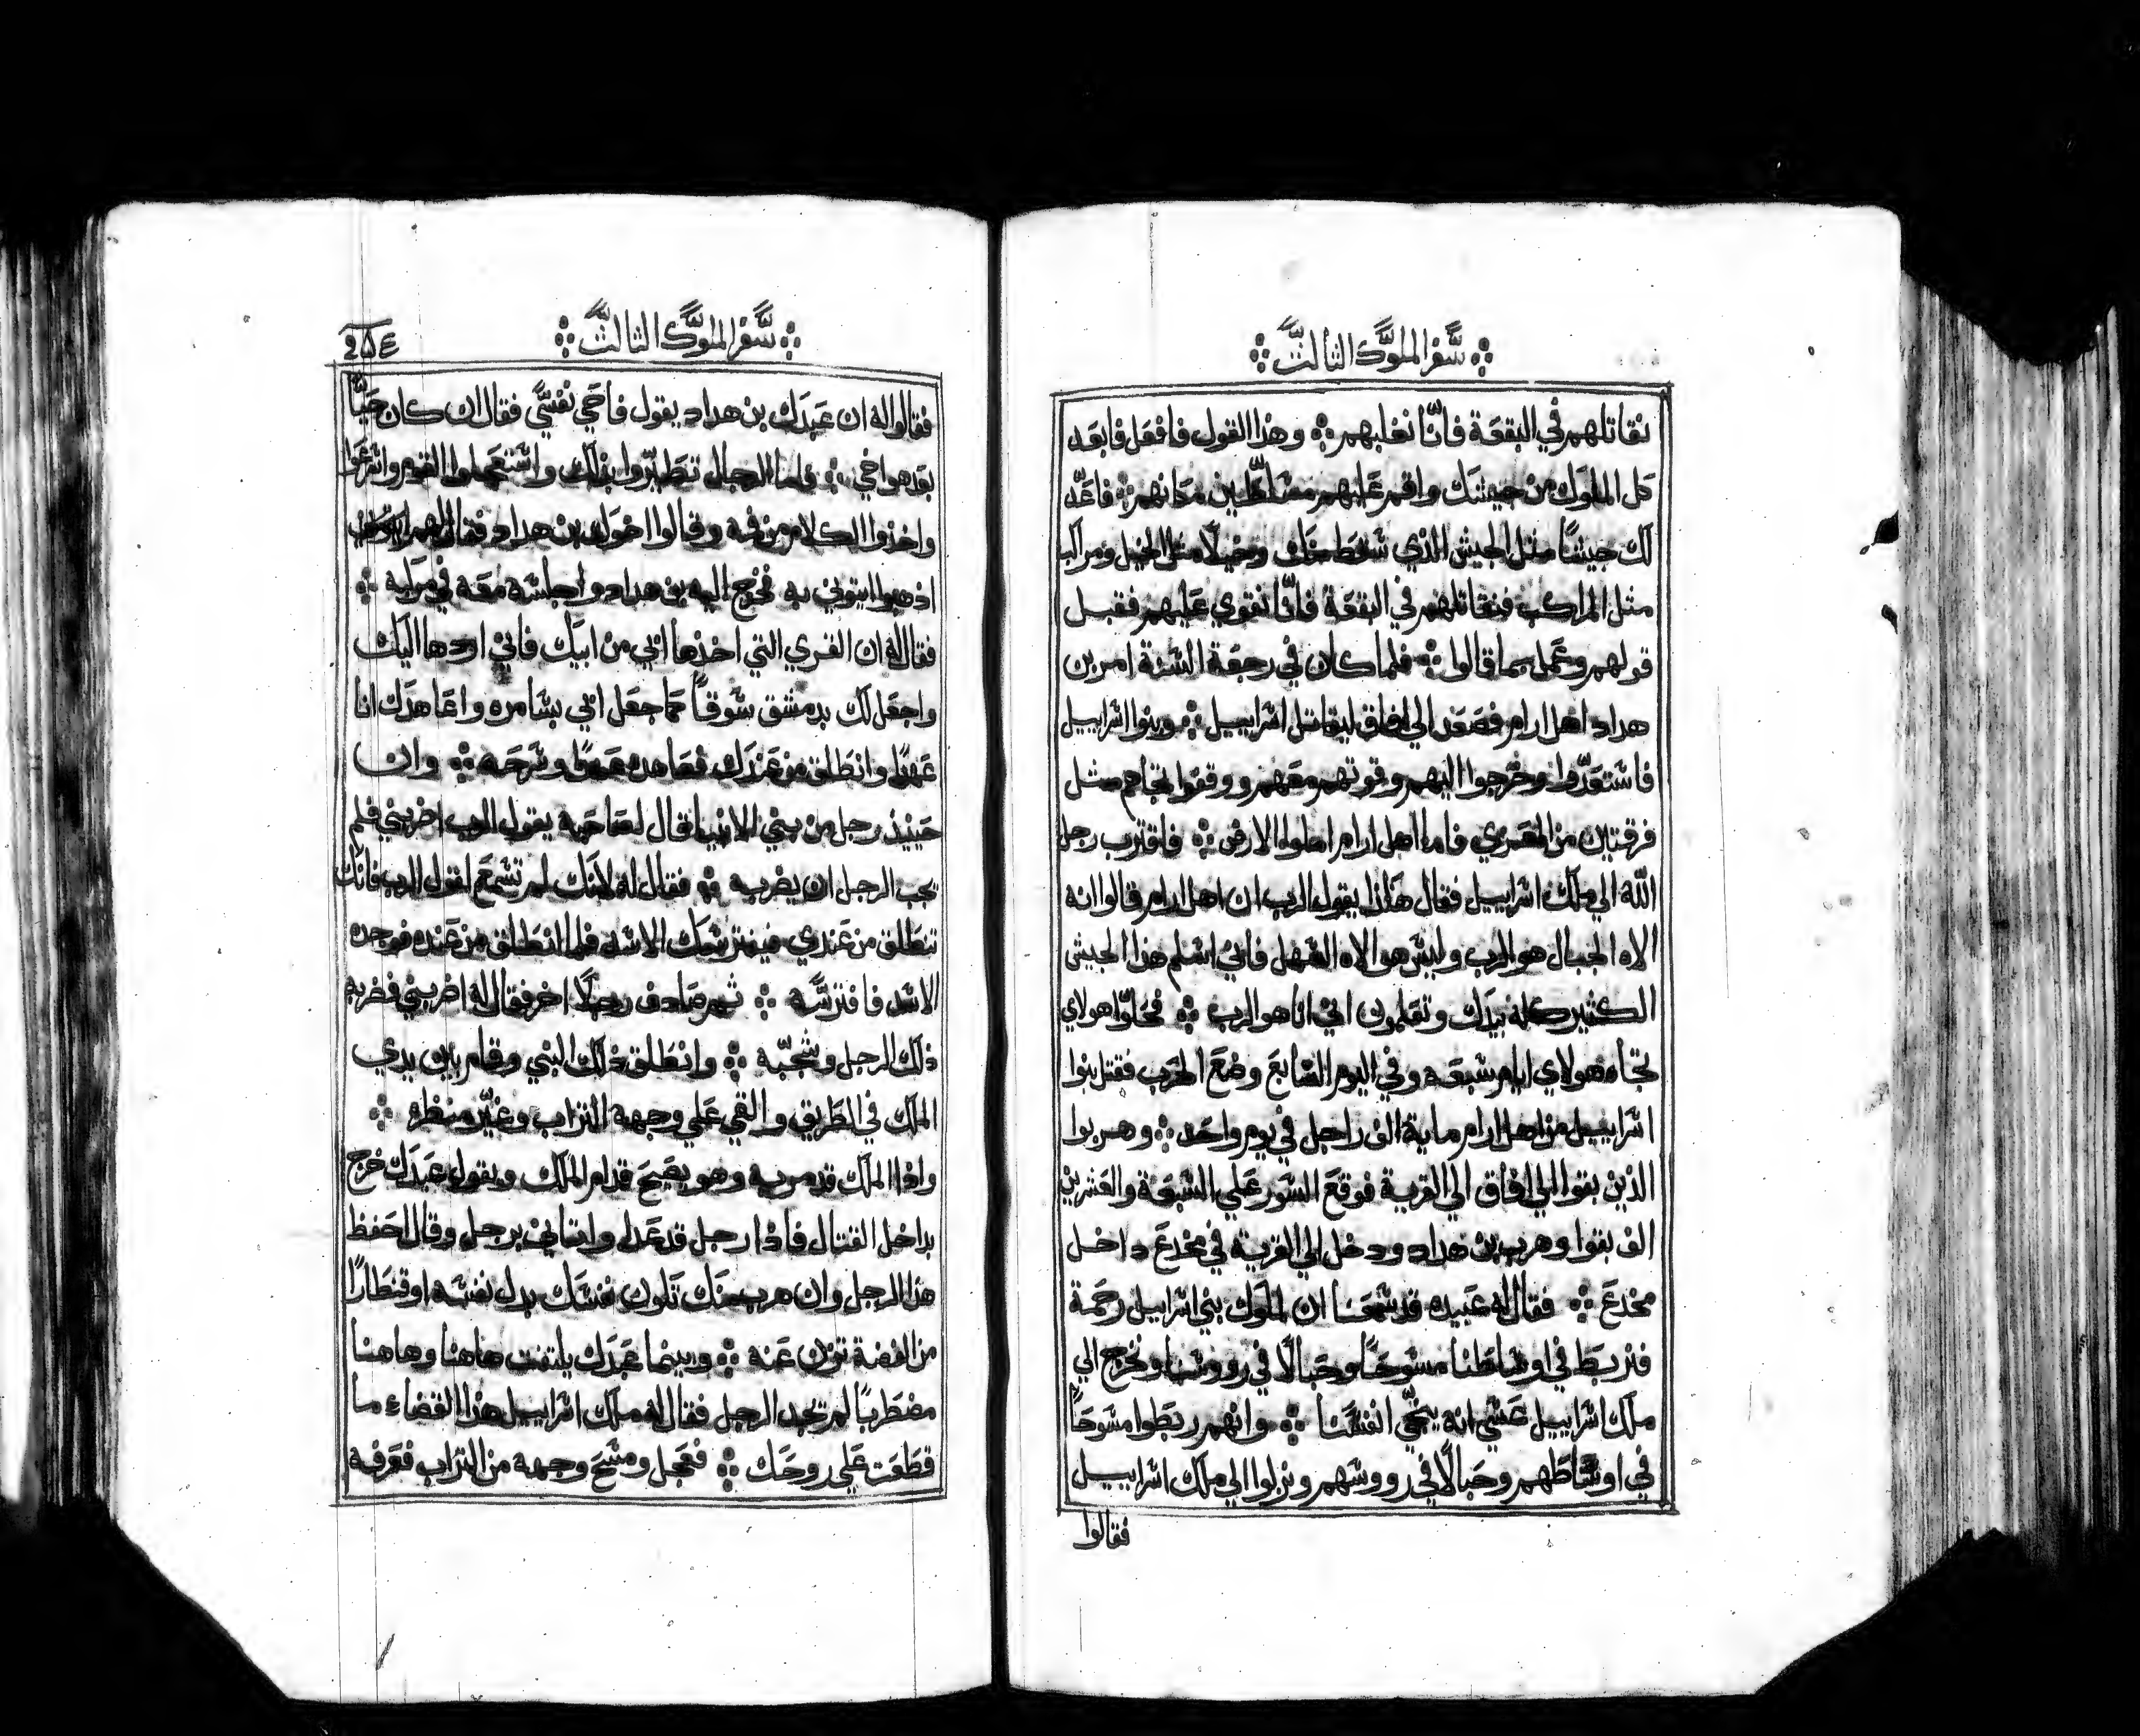 سفر الملوك الثالث
نقاتلهم في البقعة فانّا نغلبهم وهذا القول فافعل فابعد
كل الملوك من جيشك واقم عليهم مسلّطين مكانهم فاعدّ
لك جيشًا مثل الجيش الذي سقط منك وخيلًا مثل الخيل ومراكب
مثل المراكب فنقاتلهم في البقعة فانّا نقوي عليهم فقبل
قولهم وعمل بما قالوا فلما كان في رجعة السنة امر بن
هداد اهل ارام فصعد الي افاق ليقاتل اسراييل وبنوا اسراييل
فاستعدّوا وخرجوا اليهم وقوتهم معهم ووقفوا تجاهم مثل
فرقتين من المعزي فاما اهل ارام املوا الارض فاقترب رجل
الله الي ملك اسراييل فقال هكذا يقول الرب ان اهل ارام قالوا انه
الاه الجبال هو الرب وليس هو الاه السهل فاني اسلم هذا الجيش
الكثير كله بيدك وتعلمون اني انا هو الرب فحلّوا هولاي
تجاه هولاي ايام سبعه وفي اليوم السابع وضع الحرب فقتل بنوا
اسراييل من اهل ارام ماية الف راجل في يوم واحد وهربوا
الذين بقوا الي افاق الي القرية فوقع السور علي السبعة والعشرين
الف بقوا وهرب بن هداد ودخل الي القرية في مخدع داخل
مخدع فقال له عبيده قد سمعنا ان لملوك بني اسراييل رحمة
فنربط في اوساطنا مسوحًا وحبالًا في رووسنا ونخرج الي
ملك اسراييل عسي انه ينجّي انفسنا وانهم ربطوا مسوحًا
في اوساطهم وحبالًا في رووسهم ونزلوا الي ملك اسراييل
فقالوا
سفر الملوك الثالث
فقالوا له ان عبدك بن هداد يقول فاحي نفسي فقال ان كان حيًا
بعد هو اخي فلما الرجال تطيّروا بذلك واستعملوا القوم وانتزعوا
واخذوا الكلام من فيه وقالوا اخوك بن هداد فقال لهم
اذهبوا ايتوني به فخرج اليه بن هداد واجلسه معه في مركبه
فقال له ان القري التي اخذها ابي من ابيك فاني اردها اليك
واجعل لك بدمشق سوقًا كما جعل ابي بسامره واعاهدك انا
عهدًا وانطلق من عندك فعاهده عهدًا وسرحه وان
حينيذ رجل من بني الانبيا قال لصاحبه بقول الرب اضربني فلم
يجب الرجل ان يضربه فقال له لانك لم تسمع لقول الرب فانك
تنطلق من عندي فيفترسك الاسد فلما انطلق من عنده فوجده
الاسد فافترسه ثم صادف رجلًا اخر فقال له اضربني فضربه
ذلك الرجل وشجّه وانطلق ذلك النبي وقام بين يدي
الملك في الطريق والقي علي وجهه التراب وغيّر منظره
واذا الملك قد مر به وهو يصيح قدام الملك ويقول عبدك خرج
بداخل القتال فاذا رجل قد عدل واتاني برجل وقال احفظ
هذا الرجل وان هرب منك تكون نفسك بدل نفسه او قنطارًا
من الفضة تزن عنه وبينما عبدك يلتفت هاهنا وهاهنا
مضطربًا لم تجد الرجل فقال له ملك اسراييل هذا القضاء ما
قطعت علي روحك فعجل ومسح وجهه من التراب فعرفه